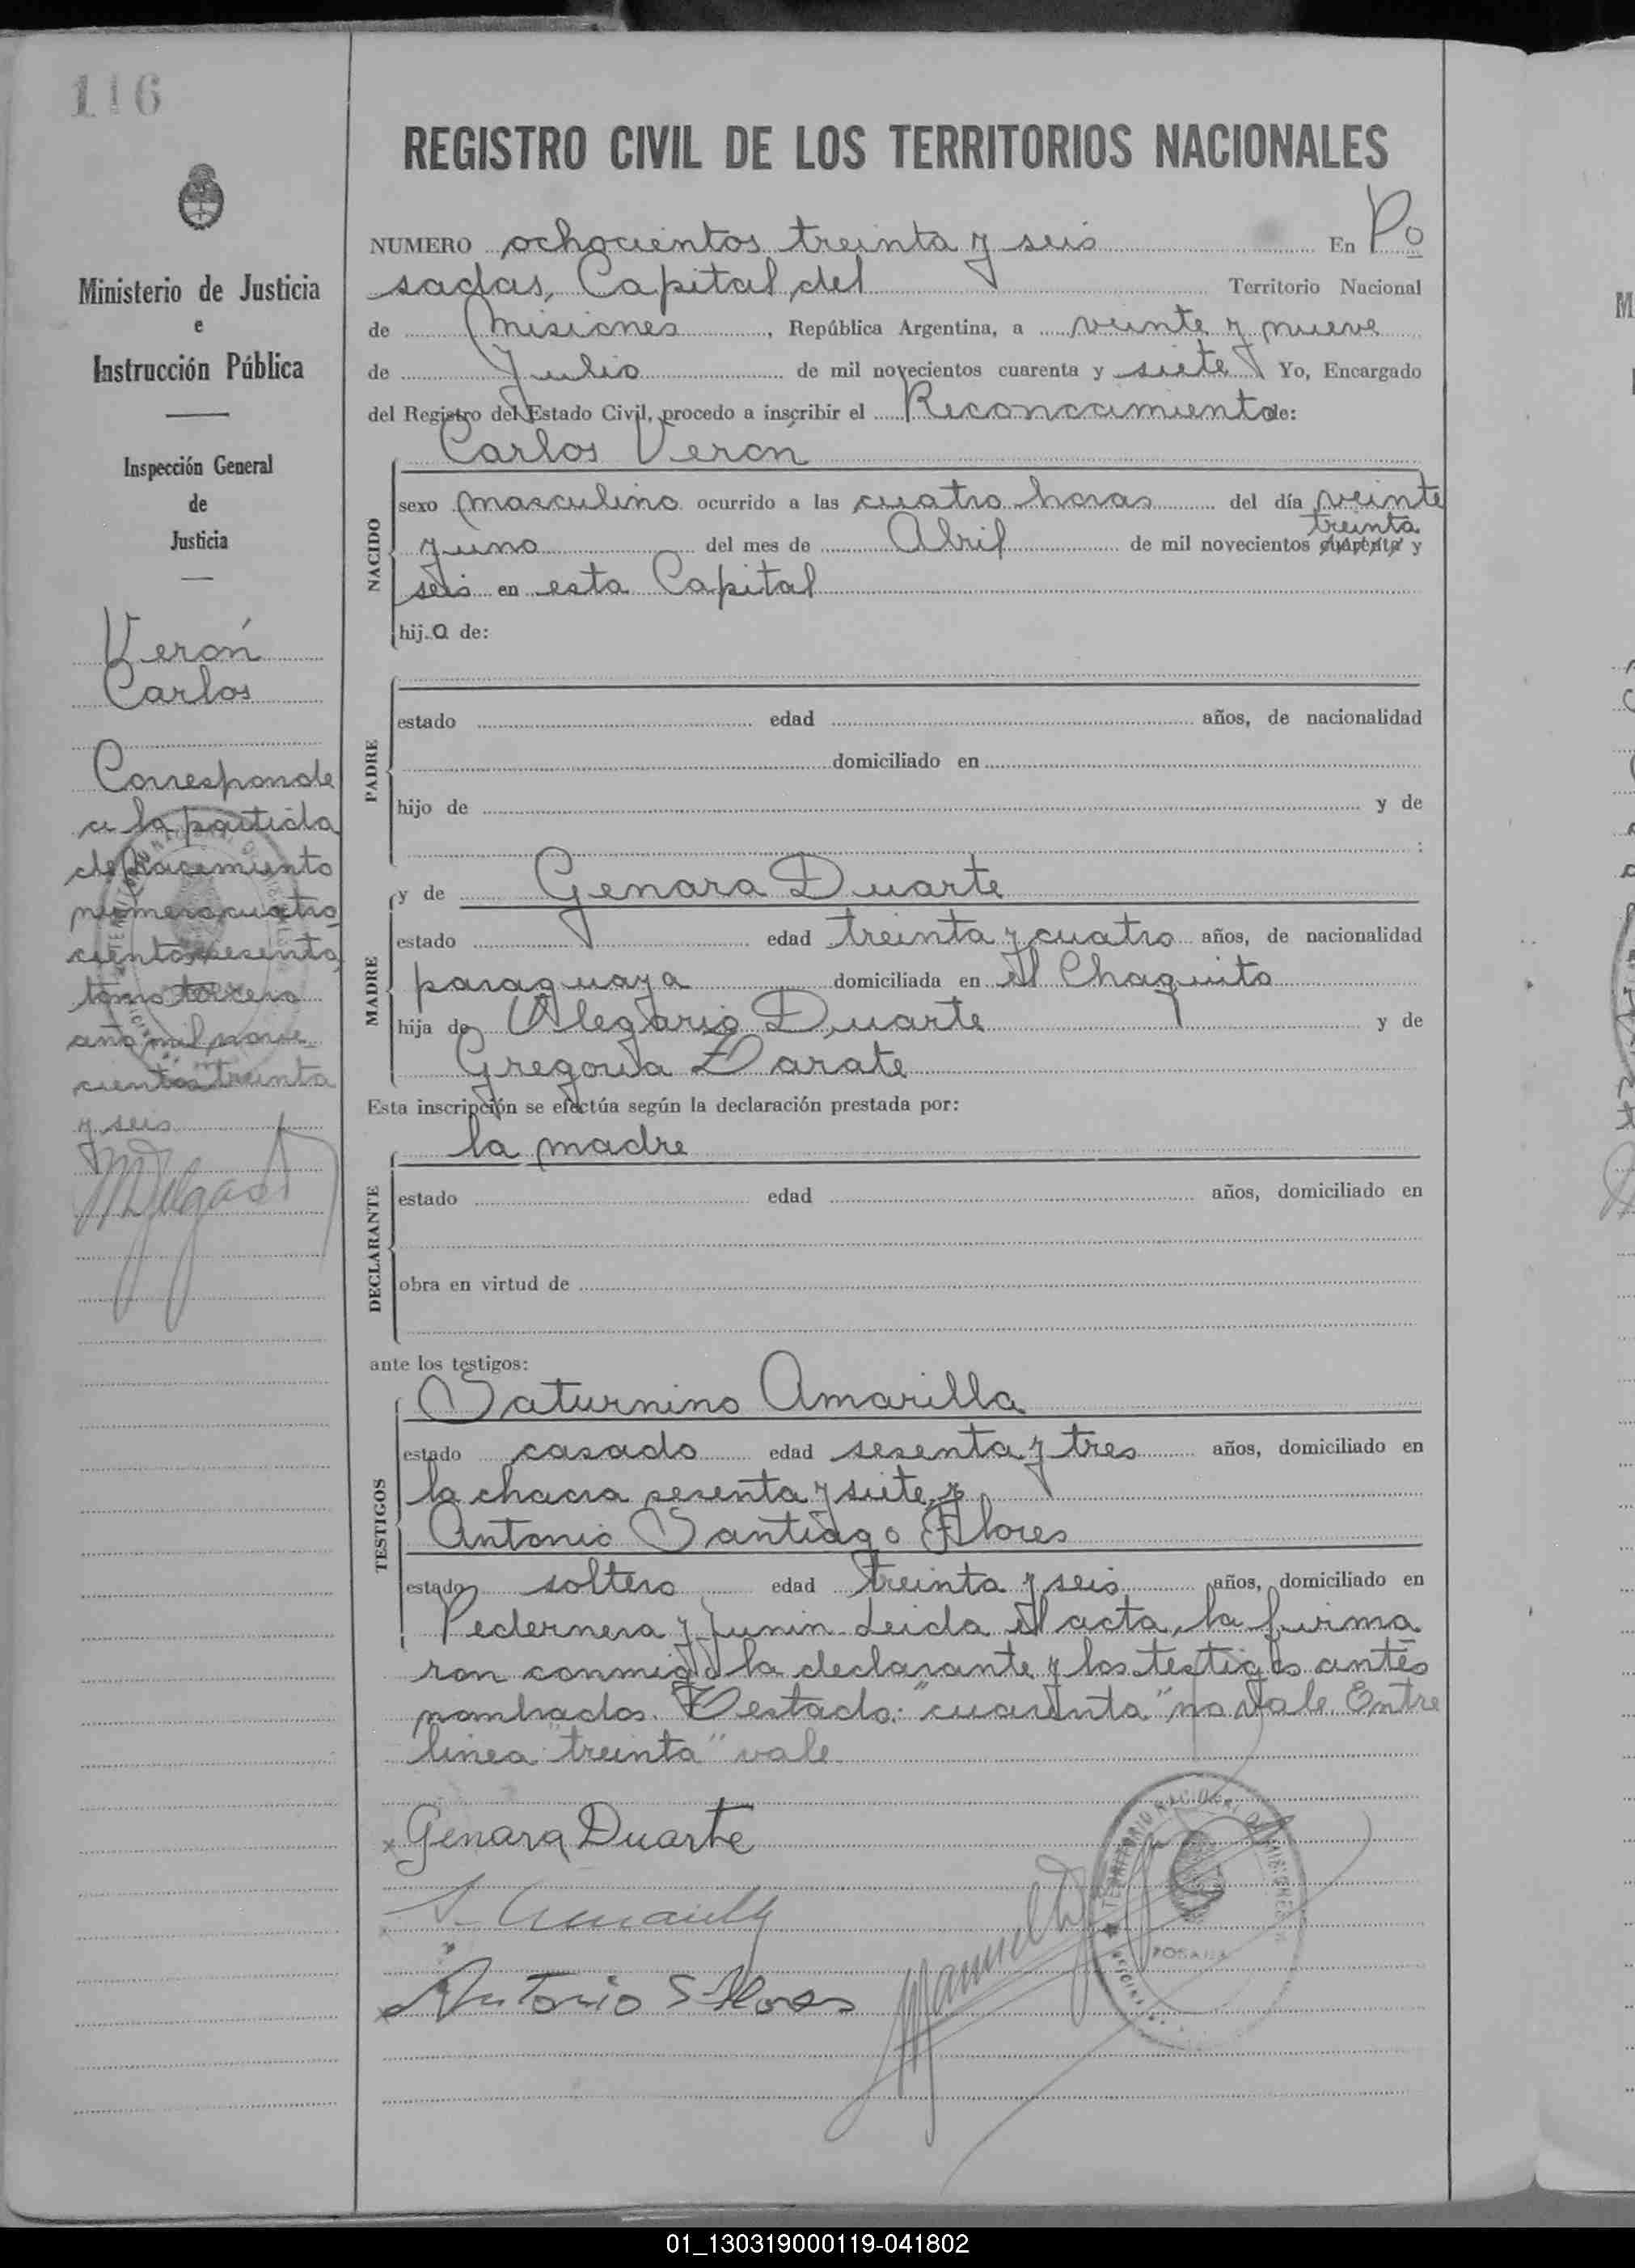 116
Ministerio de Justicia
e
Instrucción Pública
Inspección General
de
Justicia
Verón
Carlos
Corresponde
a la partida
de Nacimiento
número cuatro
cientos sesenta
tomo tercero
año mil nove
cientos treinta
y seis
REGISTRO CIVIL DE LOS TERRITORIOS NACIONALES
NUMERO ochocientos treinta y seis En Po
sadas, Capital del Territorio Nacional
de Misiones, República Argentina, a veinte y nueve
de Julio de mil novecientos cuarenta y siete Yo, Encargado
del Registro del Estado Civil, procedo a inscribir el Reconocimiento de:
Carlos Verón
NACIDO
sexo masculino ocurrido a las cuatro horas del día veinte
treinta
y uno del mes de Abril de mil novecientos cuarenta y
seis en esta Capital
hijo de:
PADRE
estado edad años, de nacionalidad
domiciliado en
hijo de y de
:
MADRE
y de Genara Duarte
estado edad treinta y cuatro años, de nacionalidad
paraguaya domiciliada en el Chaquito
hija de Olegario Duarte y de
Gregoria Zarate
Esta inscripción se efectúa según la declaración prestada por:
DECLARANTE
la madre
estado edad años, domiciliado en
obra en virtud de
ante los testigos:
TESTIGOS
Saturnino Amarilla
estado casado edad sesenta y tres años, domiciliado en
la chacra sesenta y siete y
Antonio Santiago Flores
estado soltero edad treinta y seis años, domiciliado en
Pedernera y Junin. Leida el acta, la firma
ron conmigo la declarante y los testigos antes
nombrados. Testado: "cuarenta" no vale. Entre
linea "treinta" vale
x Genara Duarte
Antonio S. Flores
Manuel
TERRITORIO NACIONAL DE MISIONES
POSADAS
01_130319000119-041802